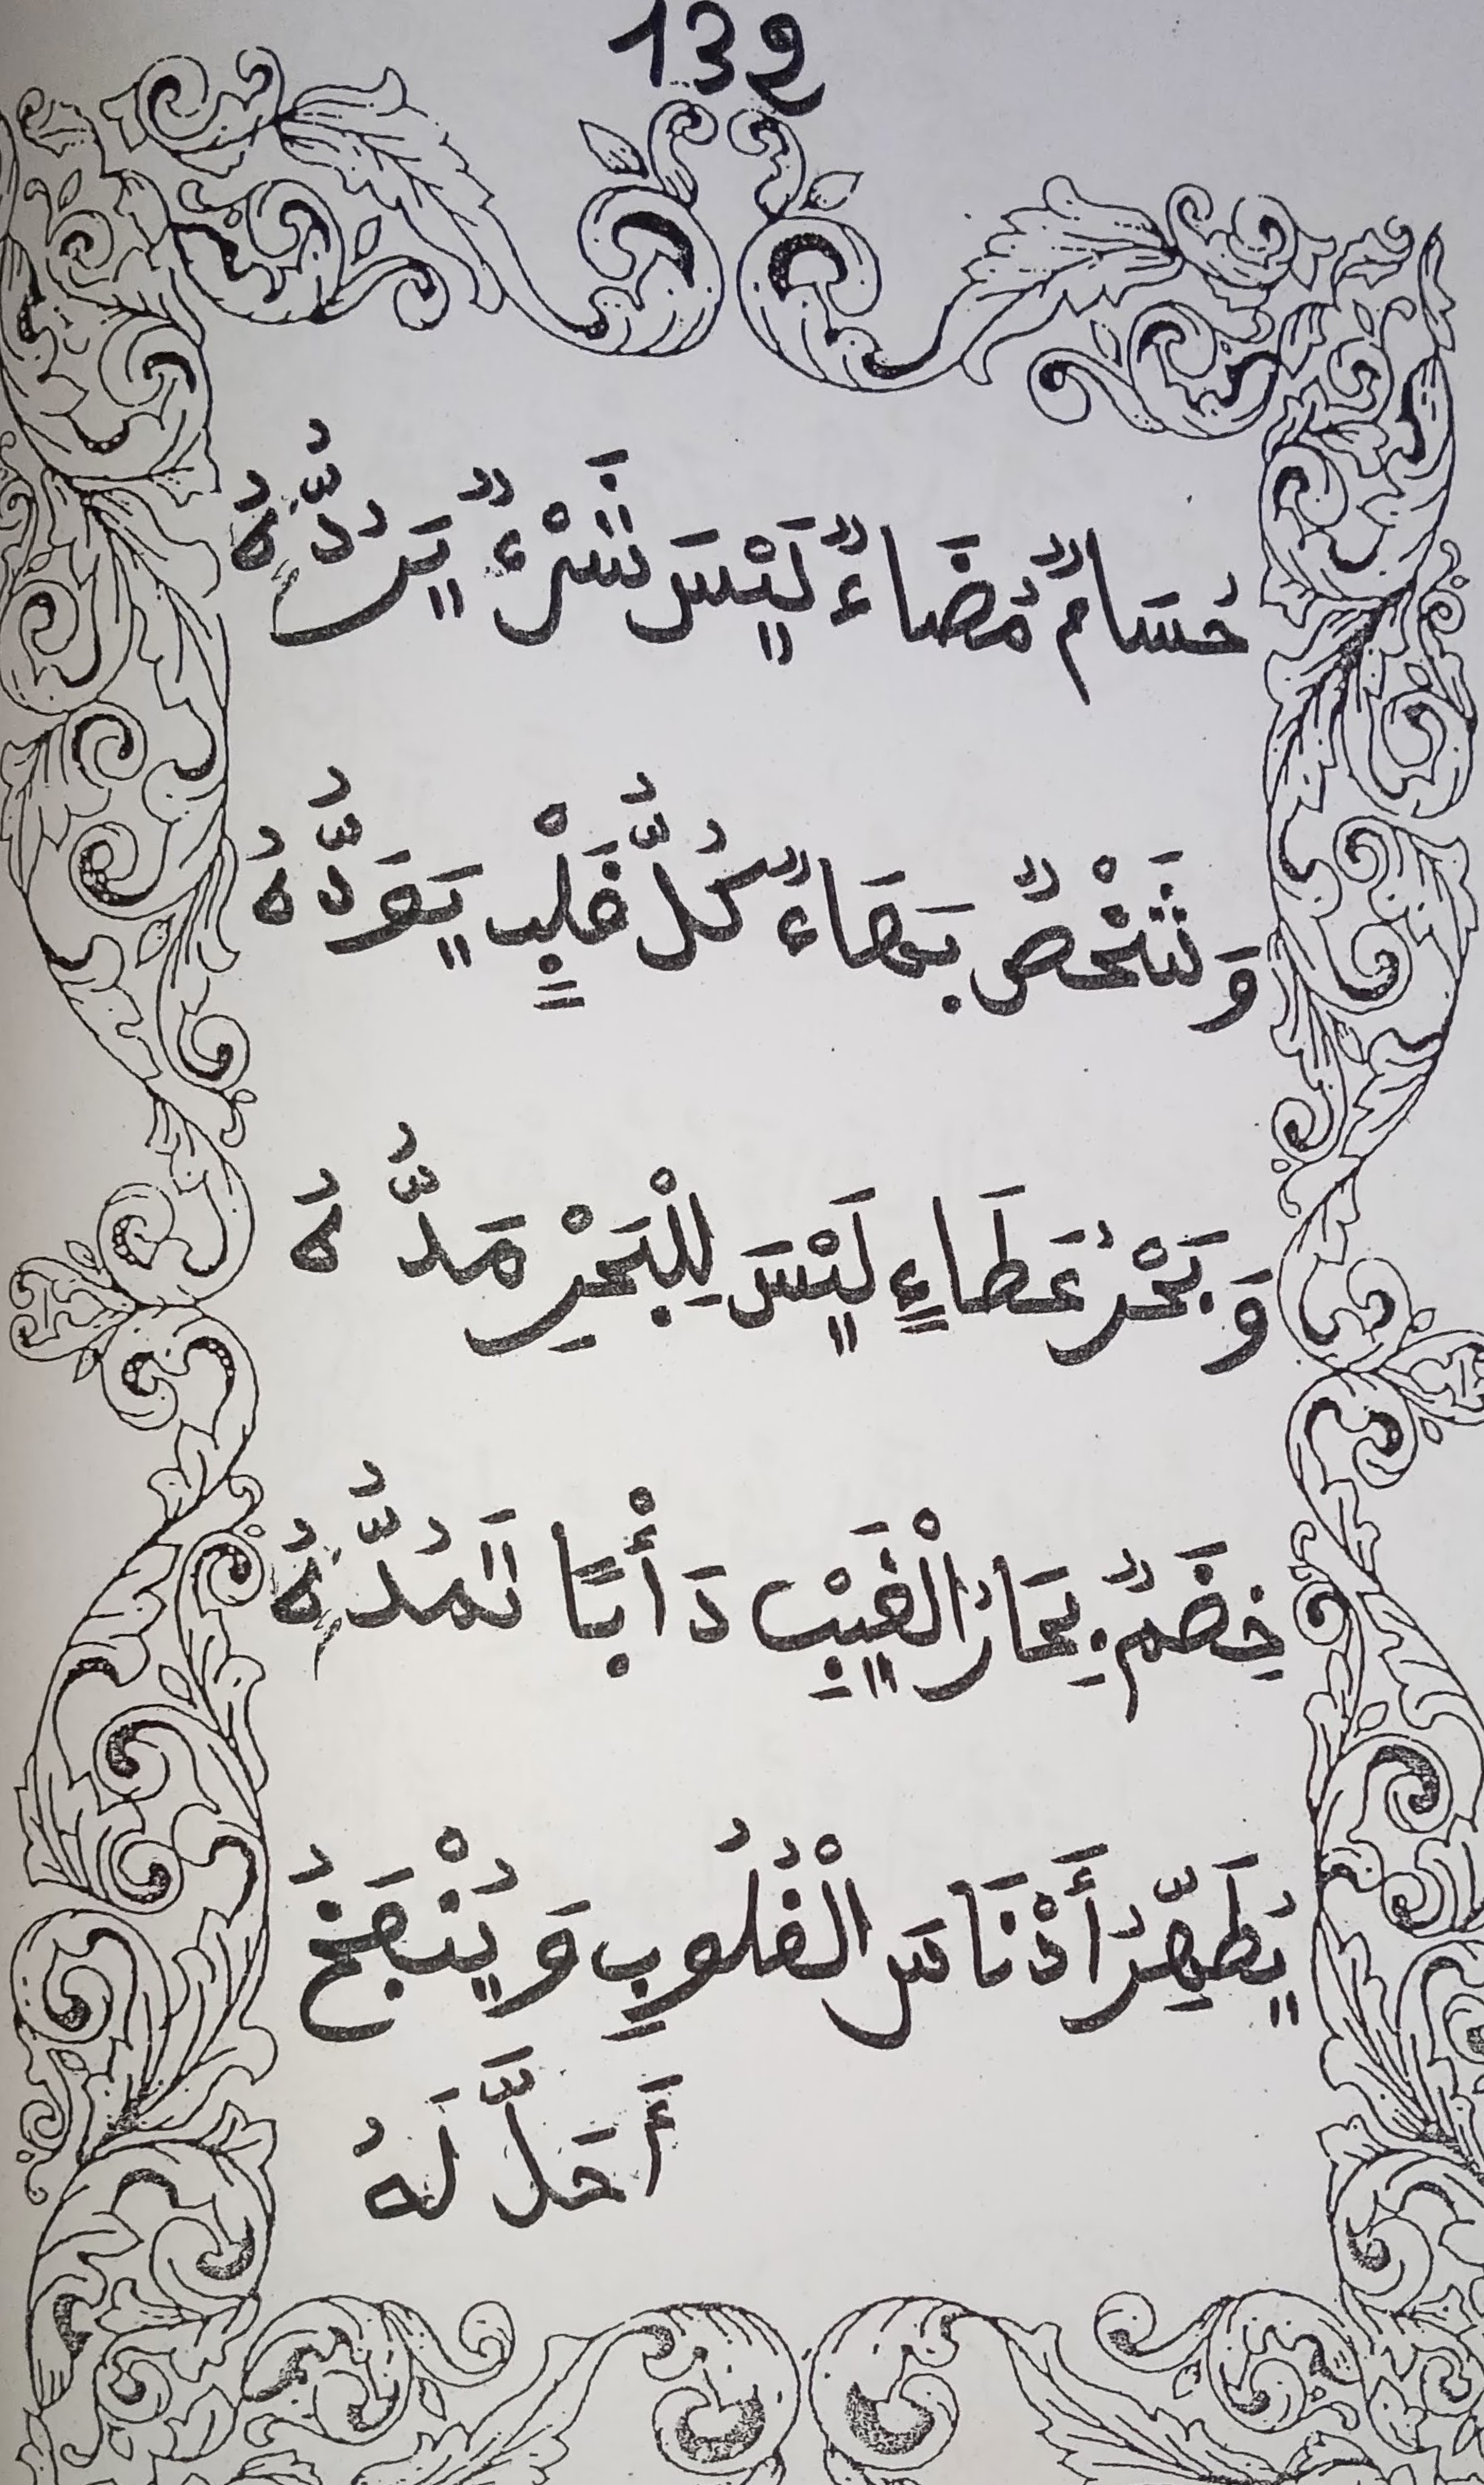 132
حُسَامٌ مُضَاءٌ لَيْسَ شَيْءٌ يَرُدُّهُ
وَشَخْصٌ بَهَاءٌ كُلُّ قَلْبٍ يَوَدُّهُ
وَبَحْرُ عَطَاءٍ لَيْسَ لِلْبَحْرِ مَدُّهُ
خِضَمٌّ بِحَارُ الْغَيْبِ دَأْبًا تَمُدُّهُ
يُطَهِّرُ أَدْنَاسَ الْقُلُوبِ وَيُنْفِخُ
أَحَلَّ لَهُ